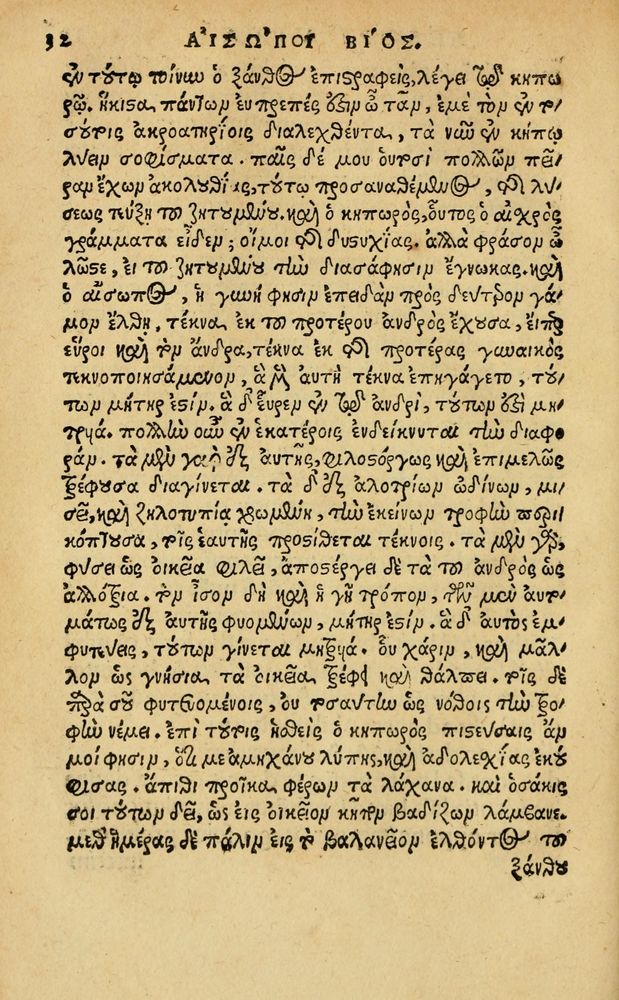 32 ΑἸΣΩ'ΠΟΥ ΒΙ'ΟΣ.
ἐν τούτῳ τοίνυν ὁ ξάνθος ἐπιστραφεὶς, λέγει τῷ κηπω
ρῷ. ἥκιστα πάντων εὐπρεπές ἐστιν ὦ τὰν, ἐμὲ τὸν ἐν το
σούτοις ἀκροατηρίοις διαλεχθέντα, τὰ νῦν ἐν κήπῳ
λύειν σοφίσματα. παῖς δέ μου οὑτοσὶ πολλῶν πεῖ
ραν ἔχων ἀκολουθίας, τούτῳ προσαναθέμενος, τῆς λύ
σεως τεύξῃ τοῦ ζητουμένου. καὶ ὁ κηπωρὸς, οὗτος ὁ αἰσχρὸς
γράμματα εἶδεν; οἴμοι τῆς δυστυχίας. ἀλλὰ φράσον ὦ
λῷστε, εἰ τοῦ ζητουμένου τὴν διασάφησιν ἔγνωκας. καὶ
ὁ αἴσωπος, ἡ γυνή φησιν ἐπειδὰν πρὸς δεύτερον γά
μον ἔλθῃ, τέκνα ἐκ τοῦ προτέρου ἀνδρὸς ἔχουσα, εἴπερ
εὕροι καὶ τὸν ἄνδρα, τέκνα ἐκ τῆς προτέρας γυναικὸς
τεκνοποιησάμενον, ἃ μὲν αὐτὴ τέκνα ἐπηγάγετο, τού
των μήτηρ ἐστίν. ἃ δ' εὗρεν ἐν τῷ ἀνδρὶ, τούτων ἐστὶ μη
τρυιά. πολλὴν οὖν ἐν ἑκατέροις ἐνδείκνυται τὴν διαφο
ράν. τὰ μὲν γὰρ ἐξ αὐτῆς, φιλοστόργως καὶ ἐπιμελῶς
τρέφουσα διαγίνεται. τὰ δ' ἐξ ἀλοτρίων ὠδίνων, μι
σεῖ, καὶ ζηλοτυπίᾳ χρωμένη, τὴν ἐκείνων τροφὴν περι
κόπτουσα, τοῖς ἑαυτῆς προστίθεται τέκνοις. τὰ μὲν γὰρ,
φύσει ὡς οἰκεῖα φιλεῖ, ἀποστέργει δὲ τὰ τοῦ ἀνδρὸς ὡς
ἀλλότρια. τὸν ἴσον δὴ καὶ ἡ γῆ τρόπον, τῶν μὲν αὐτο
μάτως ἐξ αὐτῆς φυομένων, μήτηρ ἐστίν. ἃ δ' αὐτὸς ἐμ
φυτεύεις, τούτων γίνεται μητρυιά. οὗ χάριν, καὶ μᾶλ
λον ὡς γνήσια τὰ οἰκεῖα, τρέφει καὶ θάλπει. τοῖς δὲ
παρὰ σοῦ φυτευομένοις, οὐ τοσαύτην ὡς νόθοις τὴν τρο
φὴν νέμει. ἐπὶ τούτοις ἡσθεὶς ὁ κηπωρὸς πιστεύσαις ἄν
μοί φησιν, ὅτι με ἀμηχάνου λύπης, καὶ ἀδολεχίας ἐκού
φισας. ἄπιθι προῖκα, φέρων τὰ λάχανα. καὶ ὁσάκις
σοι τούτων δεῖ, ὡς εἰς οἰκεῖον κῆπον βαδίζων λάμβανε.
μεθ' ἡμέρας δὲ πάλιν εἰς τὸ βαλανεῖον ἐλθόντος τοῦ
ξάνθου